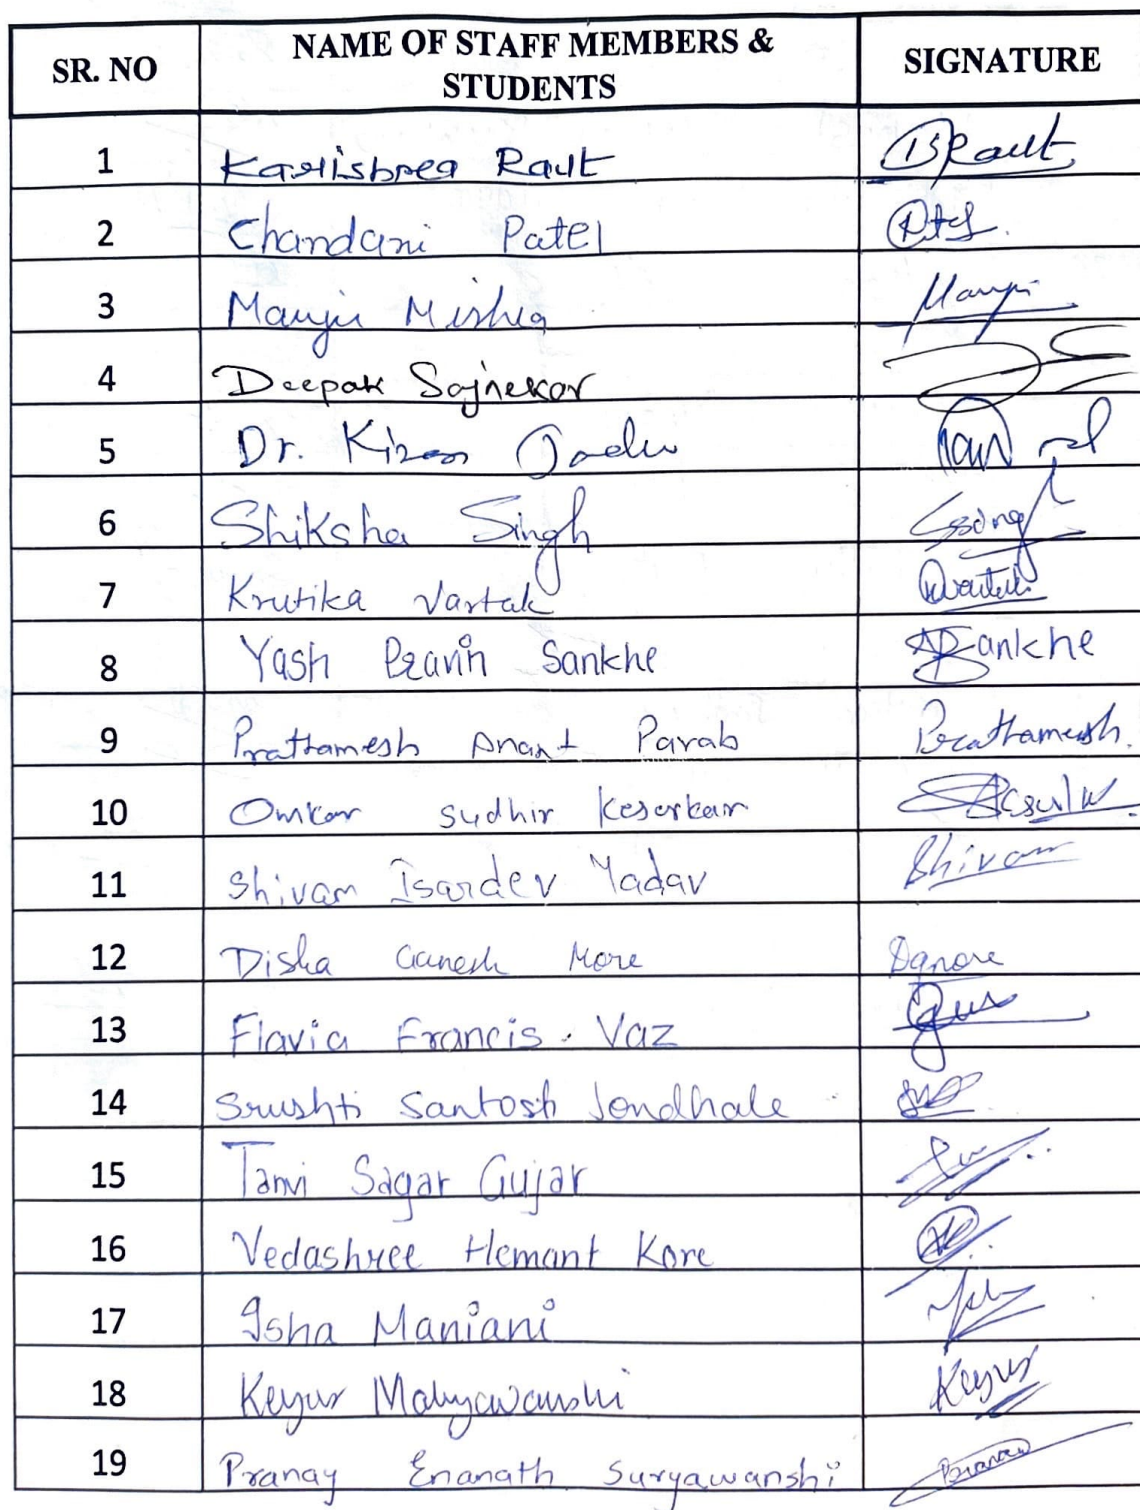 SR. NO NAME OF STAFF MEMBERS & STUDENTS SIGNATURE
1 Raut
2 Chandani Patel
3 Manju Mishra Manju
4 Deepak Sajnekar
5 Dr. Kiran
6 Shiksha Singh
7 Krutika Vartak
8 Yash Pravin Sankhe Sankhe
9 Prathamesh Anant Parab Prathamesh.
10 Omkar Sudhir Keserkar
11 Shivam Isardev Yadav Shivam
12 Disha Ganesh More Dgmore
13 Flavia Francis. Vaz
14 Srushti Santosh Jondhale
15 Tanvi Sagar Gujar
16 Vedashree Hemant Kore
17 Isha Maniani
18 Keyur Keyur
19 Pranay Enanath Suryawanshi